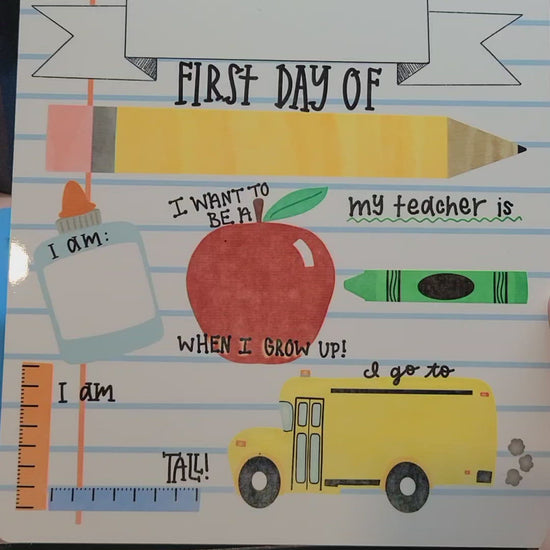 FIRST DAY OF
I WANT TO
BE A
my teacher is
I am:
WHEN I GROW UP!
I am
TALL!
I go to